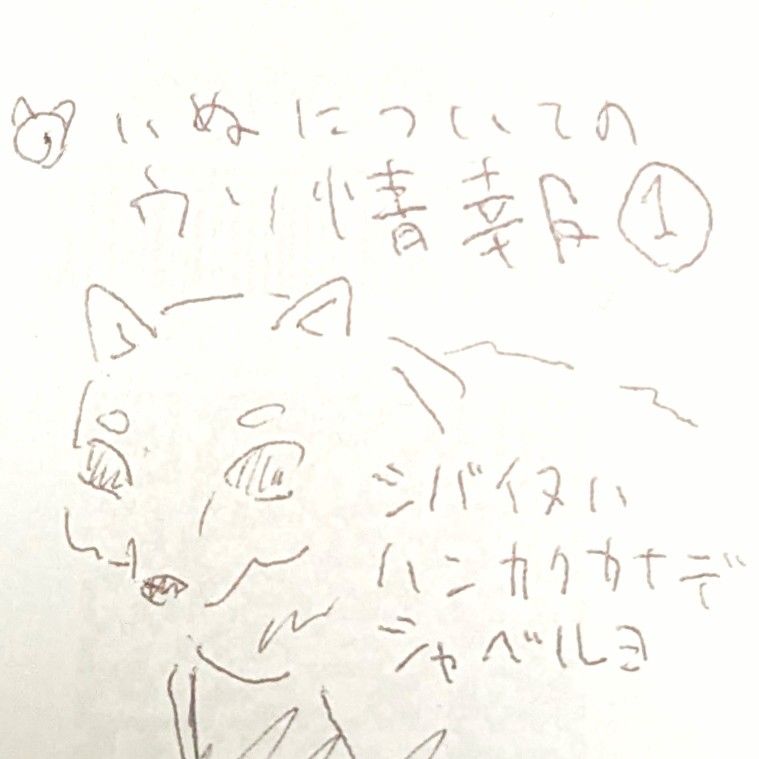 いぬについての
ウソ情報①
シバイヌハ
ハンカクカナデ
シャベルヨ